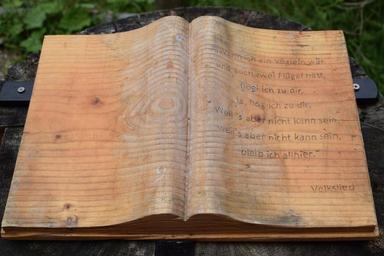 "Wenn ich ein Vöglein wär
und auch zwei Flügel hätt,
flög ich zu dir,
ja, flög ich zu dir,
Weil's aber nicht kann sein,
weil's aber nicht kann sein,
bleib ich allhier."
Volkslied